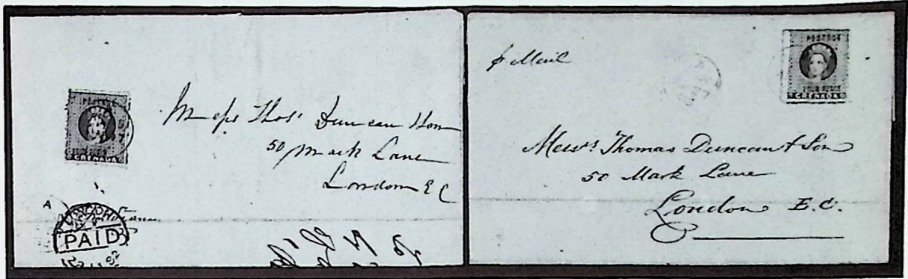 POSTAGE
GRENADA
Messrs Thos. Duncan & Son
50 Mark Lane
London E C
A
LONDON
PAID
82
p Mail
POSTAGE
FOUR PENCE
GRENADA
Messrs Thomas Duncan & Son
50 Mark Lane
London E.C.